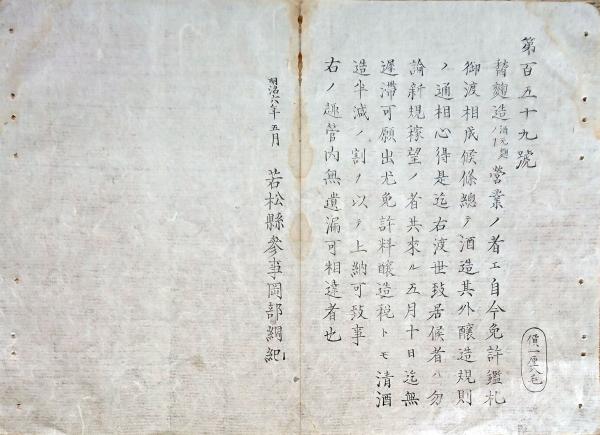 第百五十九號
替麹造ノ酒元麹ノ1營業ノ者エ自今免許鑑札
御渡相成候條總テ酒造其外醸造規則
ノ通相心得是迄右渡世致居候者ハ勿
論新規稼望ノ者共來ル五月十日迄無
遅滞可願出尤免許料醸造税トモ清酒
造半減ノ割ノ以テ上納可致事
右ノ趣管内無遺漏可相達者也
明治六年五月 若松縣參事岡部綱紀
價一厘六毛